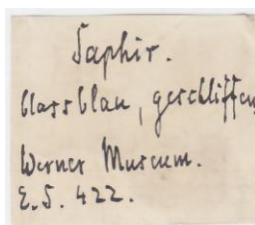 Saphir.
blassblau, geschliffen
Werner Museum.
E.S. 422.